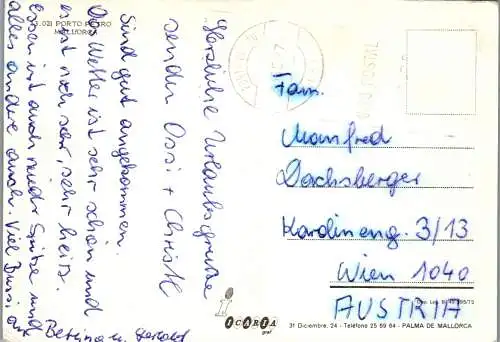 23.021 PORTO PETRO
MALLORCA
Herzliche Urlaubsgrüße
senden Ossi + Christl
Sind gut angekommen.
Das Wetter ist sehr schön und
es ist auch sehr, sehr heiß.
Essen ist auch Spitze und
alles andere auch. Viel Bussi an
Bettina u.
Fam.
Manfred
Dachsberger
Kardineng. 3/13
Wien 1040
AUSTRIA
ICARIA
graf
31 Diciembre, 24 - Teléfono 25 59 64 - PALMA DE MALLORCA